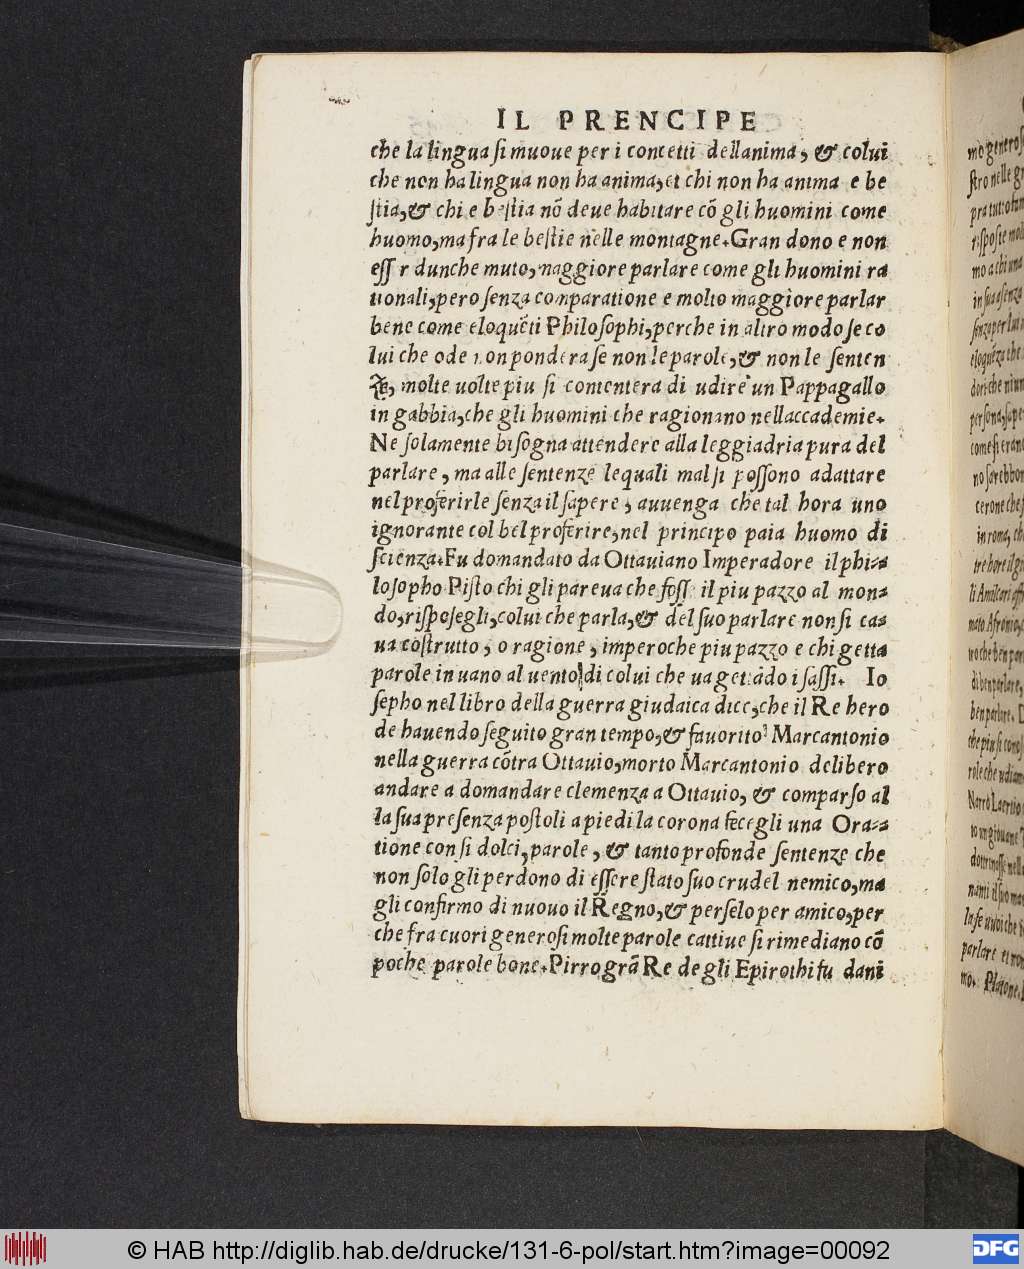 IL PRENCIPE
che la lingua si muoue per i concetti dellanima, & colui
che non ha lingua non ha anima, et chi non ha anima e be
stia, & chi e bestia nõ deue habitare cõ gli huomini come
huomo, ma fra le bestie nelle montagne. Gran dono e non
ess r dunche muto, maggiore parlare come gli huomini ra
tionali, pero senza comparatione e molto maggiore parlar
bene come eloquẽti Philosophi, perche in altro modo se co
lui che ode non pondera se non le parole, & non le senten
ze, molte uolte piu si contentera di udire un Pappagallo
in gabbia, che gli huomini che ragionano nellaccademie.
Ne solamente bisogna attendere alla leggiadria pura del
parlare, ma alle sentenze lequali mal si possono adattare
nel proferirle senza il sapere, auuenga che tal hora uno
ignorante col bel proferire, nel principo paia huomo di
scienza. Fu domandato da Ottauiano Imperadore il phi-
losopho Pisto chi gli pareua che foss il piu pazzo al mon-
do, risposegli, colui che parla, & del suo parlare non si ca-
ua costrutto, o ragione, imperoche piu pazzo e chi getta
parole in uano al uento, di colui che ua gettãdo i sassi. Io
sepho nel libro della guerra giudaica dice, che il Re hero
de hauendo seguito gran tempo, & fauorito Marcantonio
nella guerra cõtra Ottauio, morto Marcantonio delibero
andare a domandare clemenza a Ottauio, & comparso al
la sua presenza postoli a piedi la corona fecegli una Ora-
tione con si dolci, parole, & tanto profonde sentenze che
non solo gli perdono di essere stato suo crudel nemico, ma
gli confirmo di nuouo il Regno, & perselo per amico, per
che fra cuori generosi molte parole cattiue si rimediano cõ
poche parole bone. Pirro grã Re degli Epirothi fu dani
mo generos
stro nelle gr
pra tutto fam
risposte mol
mo a chi una
in sua
senza per lui
eloquẽza che
dor; che niun
persona, sape
come si eran
no sarebbon
cerone che
in roma, ch
tre hore il gi
li Amilcari aff
mato Afronio, c
uo che ben par
di ben parlare,
ben parlare. D
che piu si conos
role che udiam
Narro Laertio
to un giouane
dottrinasse nell
nanti il suo ma
la se uuoi che
parlare et non
mo. Platone,
© HAB http://diglib.hab.de/drucke/131-6-pol/start.htm?image=00092
DFG